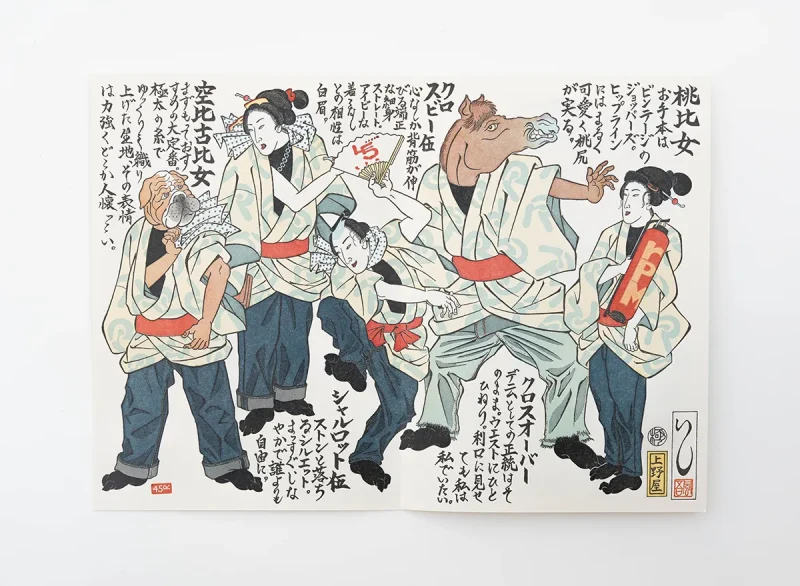 桃比女
お手本は
ビンテージの
ジョッパーズ。
ヒップライン
にはまるく
可愛く桃尻
が実る。
クロ
スビー伍
心なしか背筋が伸
びる端正
な細身
ストレート。
アイビーな
着こなし
との相性は
白眉。
空比古比女
まずもっておす
すめの大定番。
極太の糸で
ゆっくり〱織り
上げた生地、その表情
は力強くどこか人懐っこい。
45
rpm
クロスオーバー
デニムとしての正統はそ
のまま。ウエストにひと
ひねり。利口に見せ
ても私は
私でいたい。
シャルロット伍
ストンと落ち
るシルエット。
まっすぐ、しな
やかで誰よりも
自由に。
上野屋